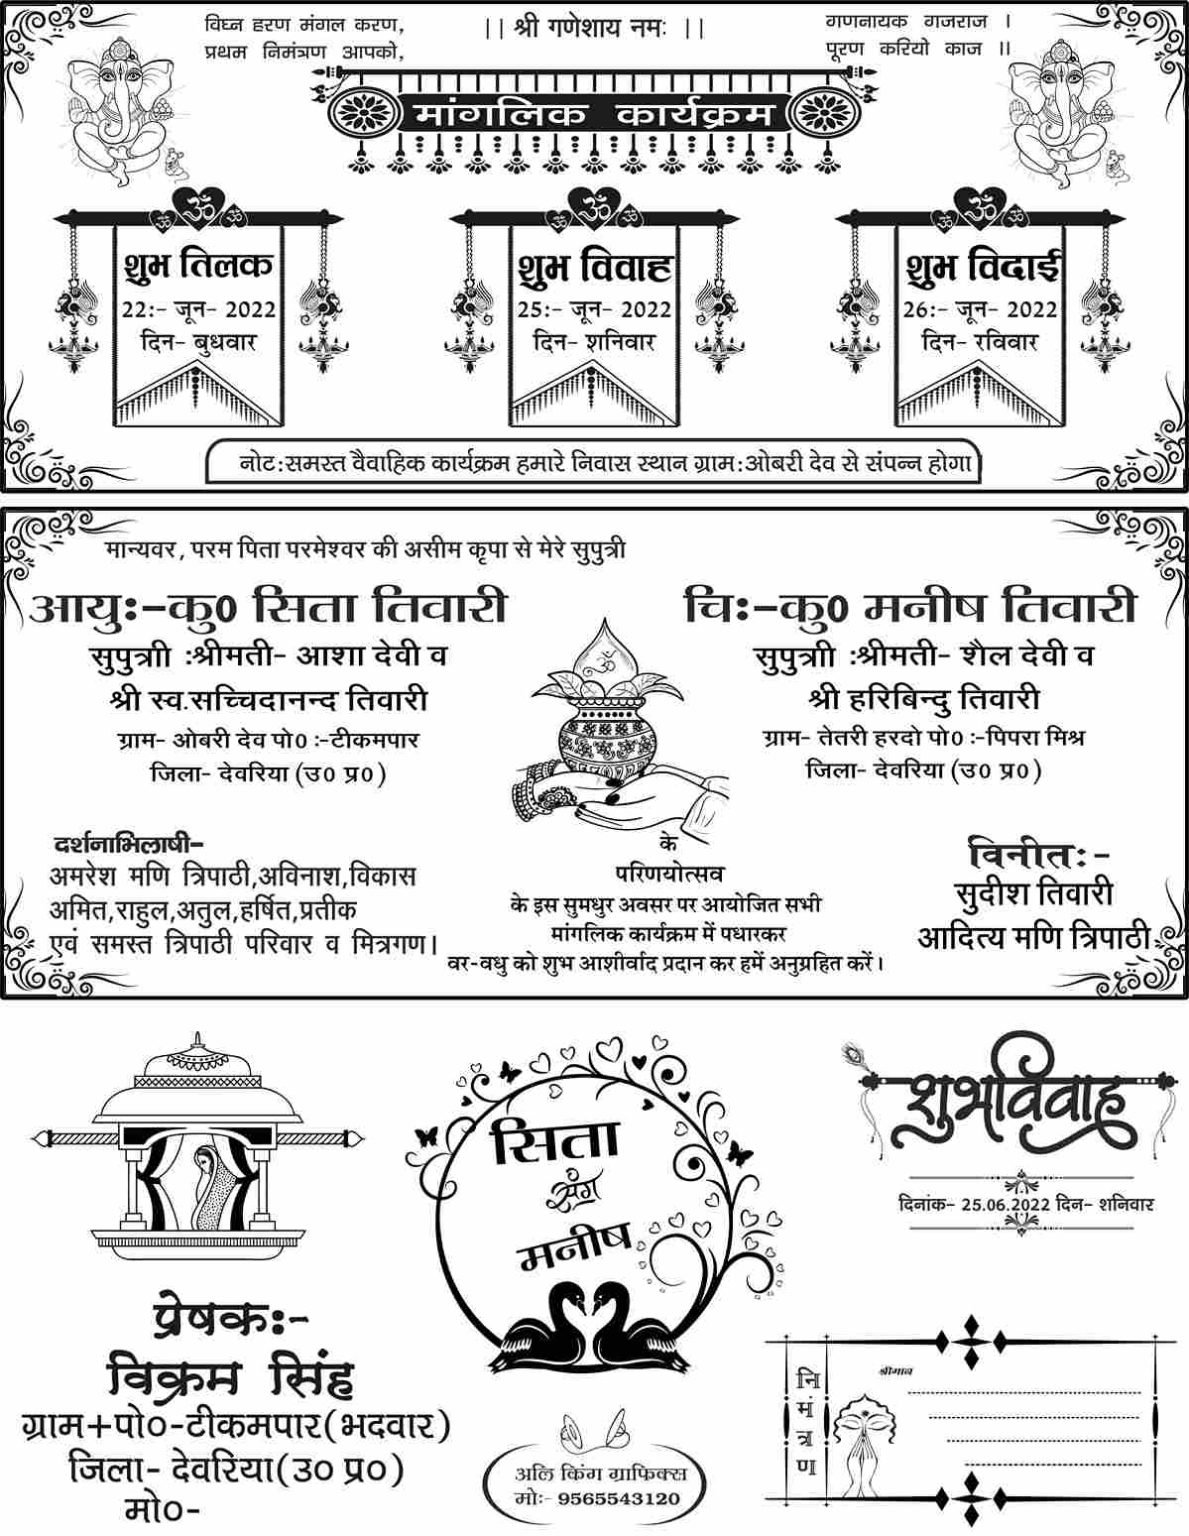 विघ्न हरण मंगल करण,
प्रथम निमंत्रण आपको,
|| श्री गणेशाय नमः ||
गणनायक गजराज ।
पूरण करियो काज ।।
मांगलिक कार्यक्रम
ॐ ॐ ॐ
शुभ तिलक
22:- जून- 2022
दिन- बुधवार
ॐ ॐ ॐ
शुभ विवाह
25:- जून- 2022
दिन- शनिवार
ॐ ॐ ॐ
शुभ विदाई
26:- जून- 2022
दिन- रविवार
नोट:समस्त वैवाहिक कार्यक्रम हमारे निवास स्थान ग्राम:ओबरी देव से संपन्न होगा
मान्यवर, परम पिता परमेश्वर की असीम कृपा से मेरे सुपुत्री
आयुः-कु0 सिता तिवारी
सुपुत्राी :श्रीमती- आशा देवी व
श्री स्व.सच्चिदानन्द तिवारी
ग्राम- ओबरी देव पो0 :-टीकमपार
जिला- देवरिया (उ0 प्र0)
ॐ
चिः-कु0 मनीष तिवारी
सुपुत्राी :श्रीमती- शैल देवी व
श्री हरिबिन्दु तिवारी
ग्राम- तेतरी हरदो पो0 :-पिपरा मिश्र
जिला- देवरिया (उ0 प्र0)
दर्शनाभिलाषी-
अमरेश मणि त्रिपाठी,अविनाश,विकास
अमित,राहुल,अतुल,हर्षित,प्रतीक
एवं समस्त त्रिपाठी परिवार व मित्रगण।
के
परिणयोत्सव
के इस सुमधुर अवसर पर आयोजित सभी
मांगलिक कार्यक्रम में पधारकर
वर-वधु को शुभ आशीर्वाद प्रदान कर हमें अनुग्रहित करें।
विनीतः-
सुदीश तिवारी
आदित्य मणि त्रिपाठी
सिता
संग
मनीष
शुभविवाह
दिनांक- 25.06.2022 दिन- शनिवार
प्रेषकः-
विक्रम सिंह
ग्राम+पो०-टीकमपार(भदवार)
जिला- देवरिया(उ० प्र०)
मो०-
अलि किंग ग्राफिक्स
मोः- 9565543120
निमंत्रण
श्रीमान